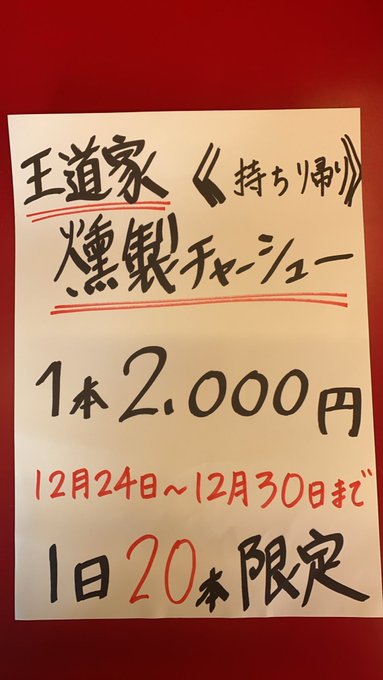 王道家 《持ち帰り》
燻製チャーシュー
1本2.000円
12月24日～12月30日まで
1日20本限定